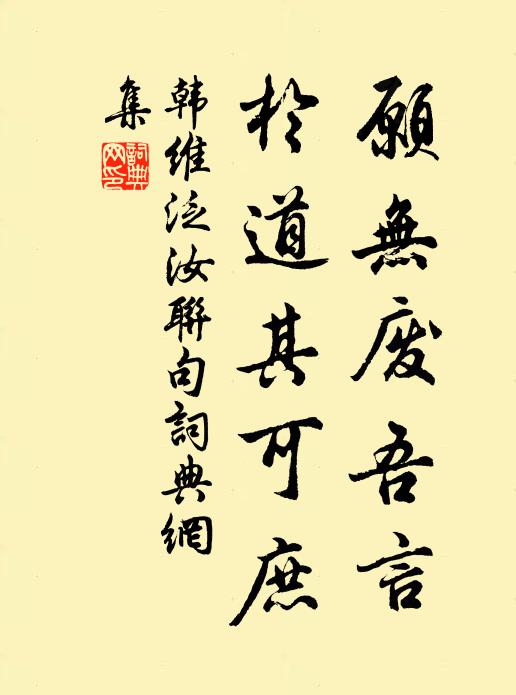 願無废吾言
於道其可庶
韩维泛汝聯句詞典網
集
詞典网印